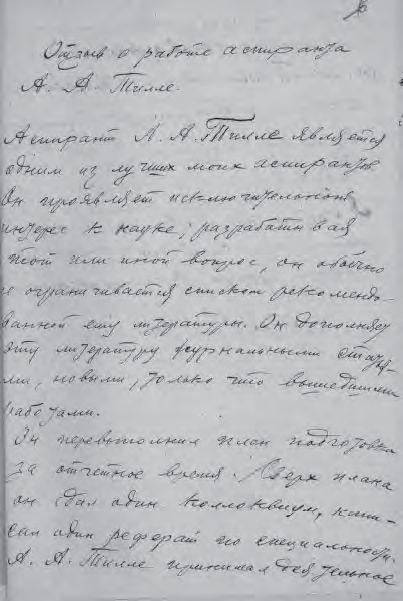 Отзыв о работе аспиранта
А. А. Тилле.
Аспирант А. А. Тилле является
одним из лучших моих аспирантов
Он проявляет исключительный
интерес к науке; разрабатывая
тот или иной вопрос, он обычно
не ограничивается списком рекомендо-
ванной ему литературы. Он дополняет
эту литературу журнальными стать-
ями, новыми, только что вышедшими
работами.
Он перевыполнил план подготовки
за отчетное время. Сверх плана
он сдал один коллоквиум, напи-
сал один реферат по специальности.
А. А. Тилле принимал деятельное